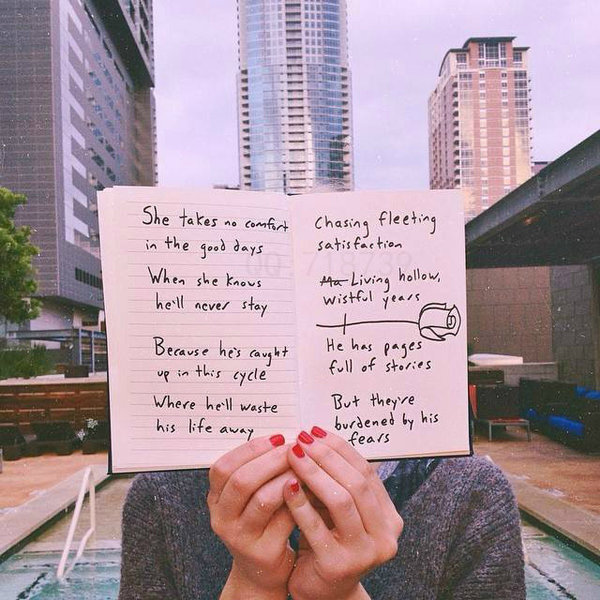 She takes no comfort
in the good days
When she knows
he'll never stay
Because he's caught
up in this cycle
Where he'll waste
his life away
Chasing fleeting
satisfaction
Ma Living hollow,
wistful years
He has pages
full of stories
But they're
burdened by his
fears